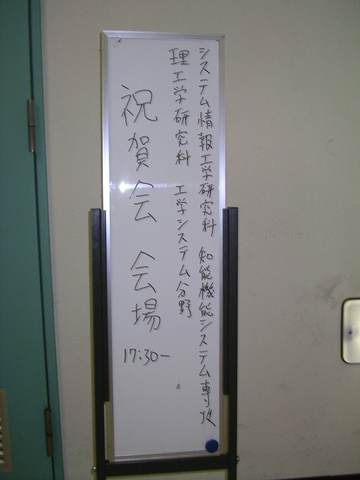 システム情報工学研究科 知能機能システム専攻
理工学研究科 工学システム分野
祝賀会 会場
17:30ー